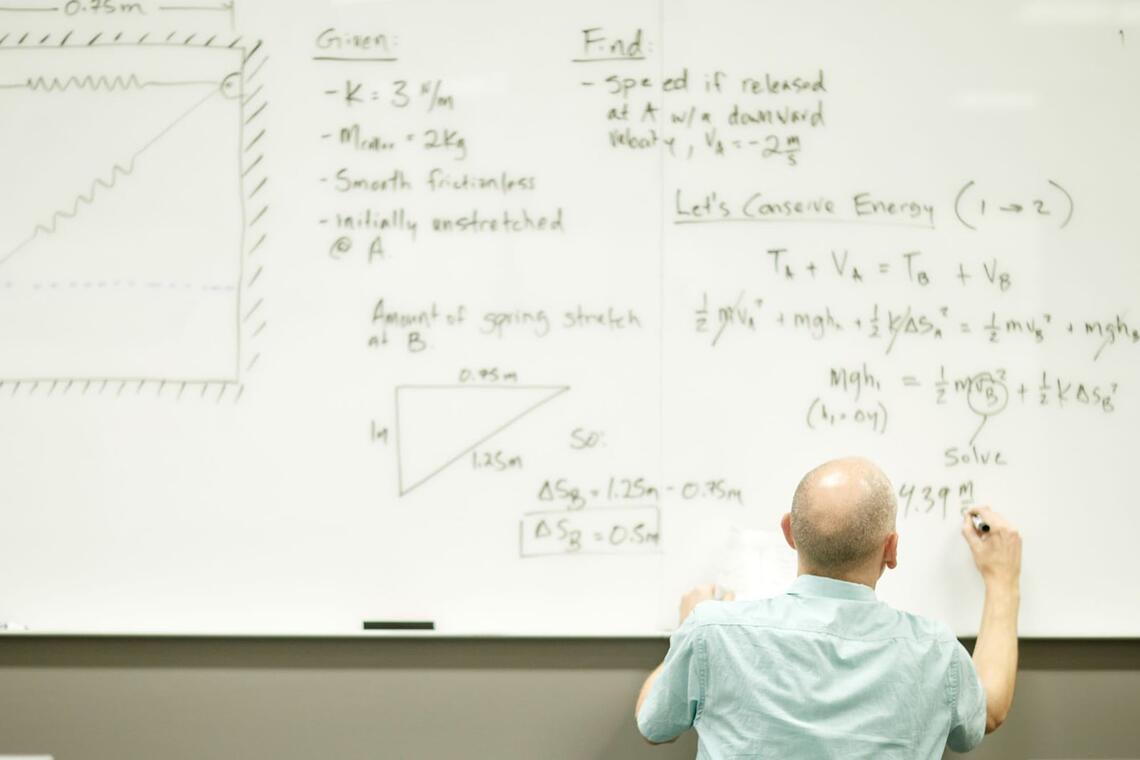 0.75m
Given:
- K = 3 N/m
- Mcollar = 2Kg
- Smooth frictionless
- Initially unstretched
@ A.
Amount of spring stretch
at B.
0.75m
1m
1.25m
So:
ΔSB = 1.25m - 0.75m
ΔSB = 0.5m
Find:
- Speed if released
at A w/a downward
velocity, VA = -2 m/s
Let's Conserve Energy (1 → 2)
TA + VA = TB + VB
1/2 mVA² + mghA + 1/2 KΔSA² = 1/2 mVB² + mghB
mgh1 = 1/2 mVB² + 1/2 KΔSB²
(h1 = Δy)
Solve
4.39 m